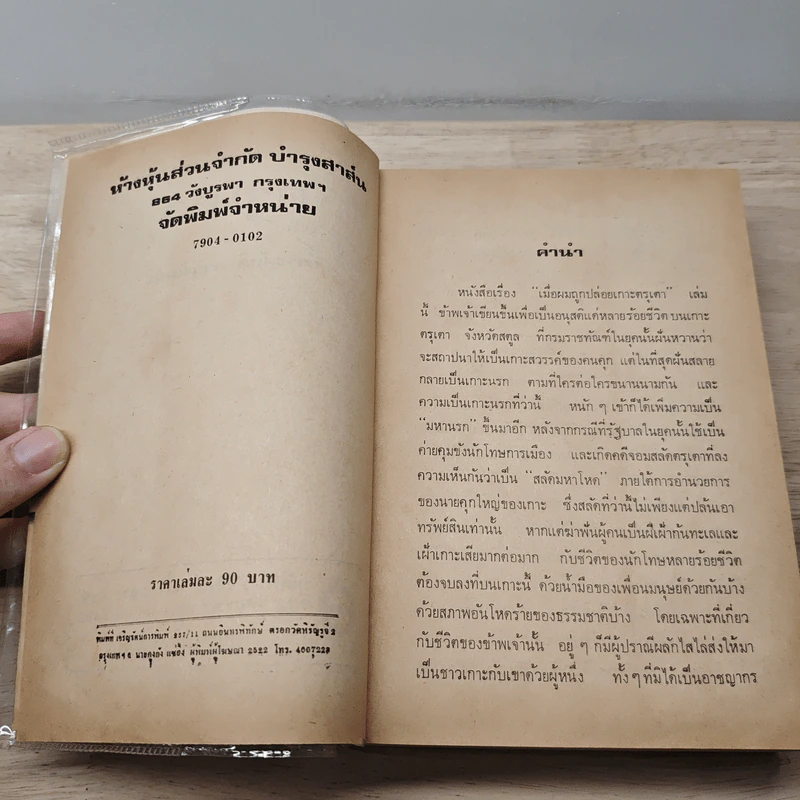 ห้างหุ้นส่วนจำกัด บำรุงสาส์น
884 วังบูรพา กรุงเทพฯ
จัดพิมพ์จำหน่าย
7904-0102
ราคาเล่มละ 90 บาท
พิมพ์ที่ เจริญรัตน์การพิมพ์ 257/11 ถนนอินทรพิทักษ์ ตรอกวัดหิรัญรูจี 2
กรุงเทพฯ 4 ผู้พิมพ์ผู้โฆษณา 2522 โทร. 4667229
คำนำ
หนังสือเรื่อง "เมื่อผมถูกปล่อยเกาะตรุเตา" เล่ม
นี้ ข้าพเจ้าเขียนขึ้นเพื่อเป็นอนุสติแด่หลายร้อยชีวิต บนเกาะ
ตรุเตา จังหวัดสตูล ที่กรมราชทัณฑ์ในยุคนั้นฝันหวานว่า
จะสถาปนาให้เป็นเกาะสวรรค์ของคนคุก แต่ในที่สุดฝันสลาย
กลายเป็นเกาะนรก ตามที่ใครต่อใครขนานนามกัน และ
ความเป็นเกาะนรกที่ว่านี้ หนัก ๆ เข้าก็ได้เพิ่มความเป็น
"มหานรก" ขึ้นมาอีก หลังจากกรณีที่รัฐบาลในยุคนั้นใช้เป็น
ค่ายคุมขังนักโทษการเมือง และเกิดคดีจอมสลัดตรุเตาที่ลง
ความเห็นกันว่าเป็น "สลัดมหาโหด" ภายใต้การอำนวยการ
ของนายคุกใหญ่ของเกาะ ซึ่งสลัดที่ว่านี้ไม่เพียงแต่ปล้นเอา
ทรัพย์สินเท่านั้น หากแต่ฆ่าฟันผู้คนเป็นผีเฝ้ากันทะเลและ
เฝ้าเกาะเสียมากต่อมาก กับชีวิตของนักโทษหลายร้อยชีวิต
ต้องจบลงที่บนเกาะนี้ ด้วยน้ำมือของเพื่อนมนุษย์ด้วยกันบ้าง
ด้วยสภาพอันโหดร้ายของธรรมชาติบ้าง โดยเฉพาะที่เกี่ยว
กับชีวิตของข้าพเจ้านั้น อยู่ ๆ ก็มีผู้ปราณีผลักไสไล่ส่งให้มา
เป็นชาวเกาะกับเขาด้วยผู้หนึ่ง ทั้ง ๆ ที่มิได้เป็นอาชญากร